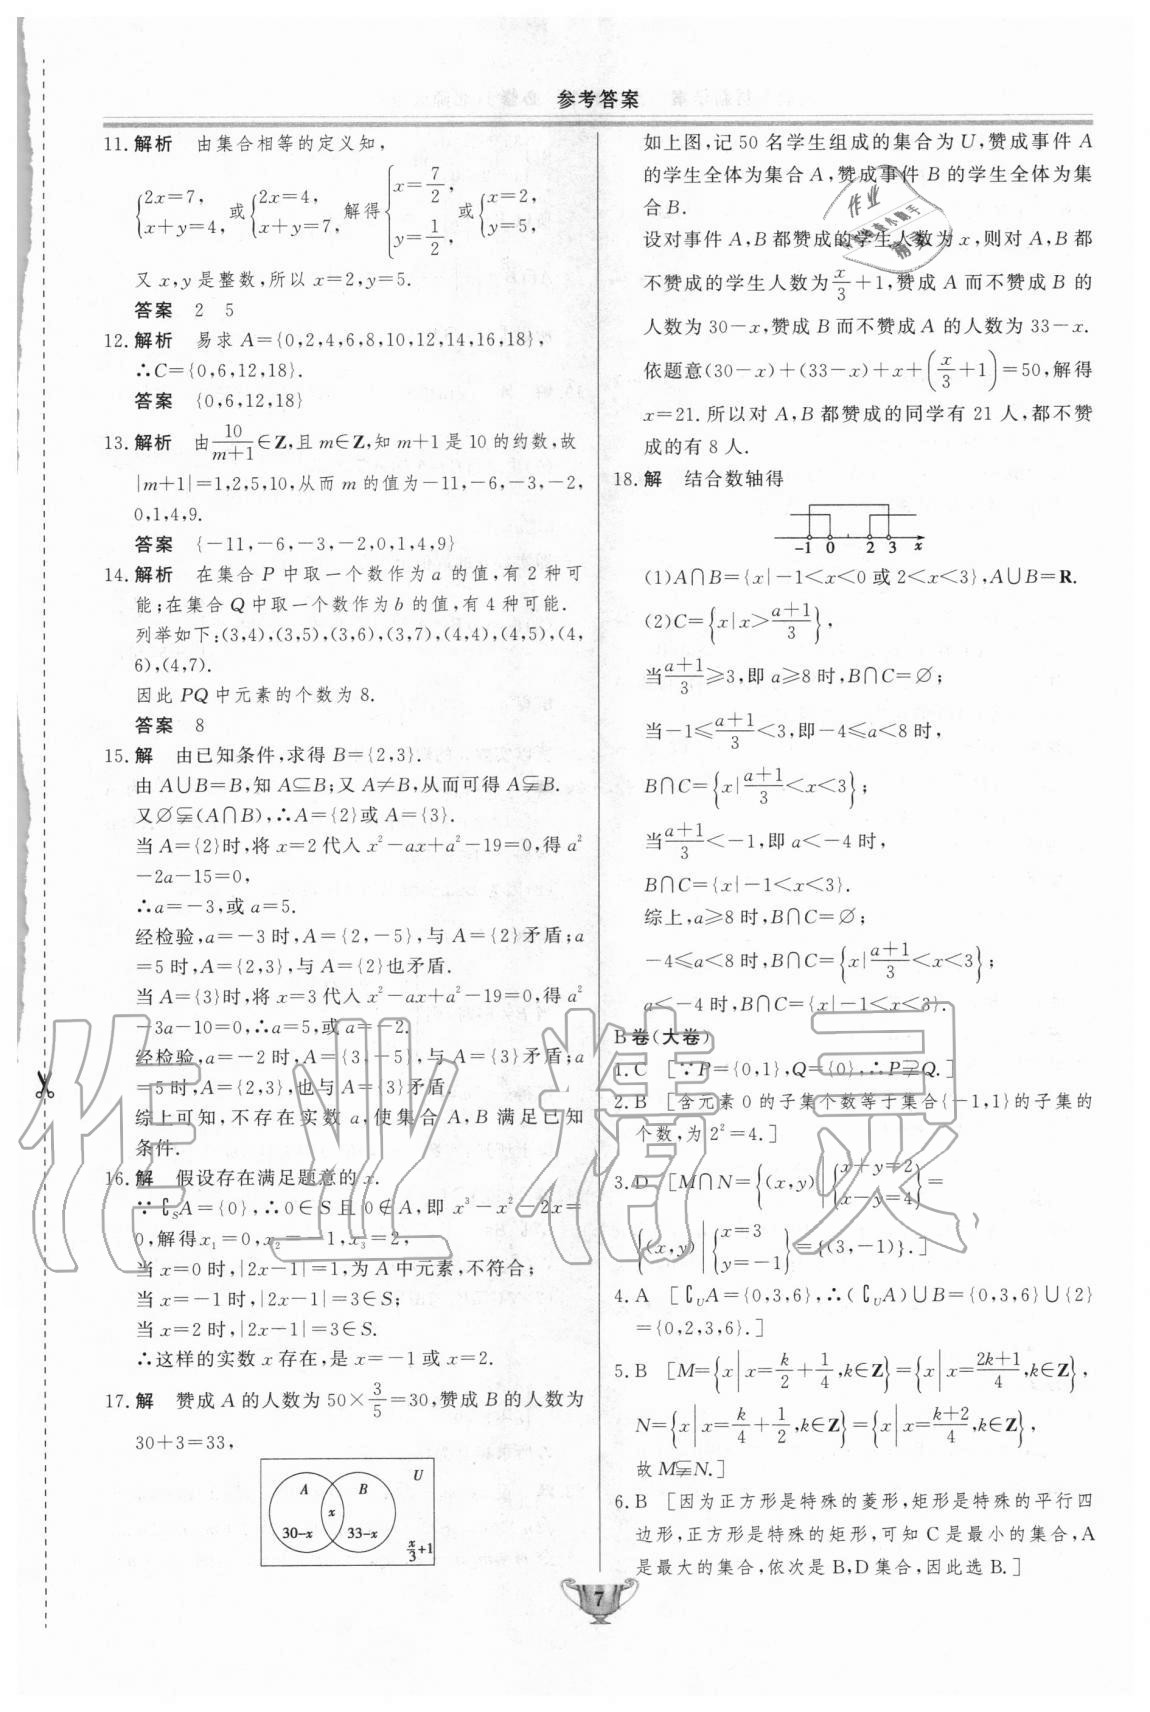 参考答案
11. 解析 由集合相等的定义知,
{2x=7, x+y=4, 或{2x=4, x+y=7, 解得{x=7/2, y=1/2, 或{x=2, y=5,
又 x,y 是整数,所以 x=2,y=5.
答案 2 5
12. 解析 易求 A={0,2,4,6,8,10,12,14,16,18},
∴C={0,6,12,18}.
答案 {0,6,12,18}
13. 解析 由10/(m+1)∈Z,且 m∈Z,知 m+1 是 10 的约数,故
|m+1|=1,2,5,10,从而 m 的值为−11,−6,−3,−2,
0,1,4,9.
答案 {−11,−6,−3,−2,0,1,4,9}
14. 解析 在集合 P 中取一个数作为 a 的值,有 2 种可
能;在集合 Q 中取一个数作为 b 的值,有 4 种可能.
列举如下:(3,4),(3,5),(3,6),(3,7),(4,4),(4,5),(4,
6),(4,7).
因此 PQ 中元素的个数为 8.
答案 8
15. 解 由已知条件,求得 B={2,3}.
由 A∪B=B,知 A⊆B;又 A≠B,从而可得 A⫋B.
又∅⫋(A∩B),∴A={2}或 A={3}.
当 A={2}时,将 x=2 代入 x²−ax+a²−19=0,得 a²
−2a−15=0,
∴a=−3,或 a=5.
经检验,a=−3 时,A={2,−5},与 A={2}矛盾;a
=5 时,A={2,3},与 A={2}也矛盾.
当 A={3}时,将 x=3 代入 x²−ax+a²−19=0,得 a²
−3a−10=0,∴a=5,或 a=−2.
经检验,a=−2 时,A={3,−5},与 A={3}矛盾;a
=5 时,A={2,3},也与 A={3}矛盾.
综上可知,不存在实数 a,使集合 A,B 满足已知
条件.
16. 解 假设存在满足题意的 x.
∵∁SA={0},∴0∈S 且 0∉A,即 x³−x²−2x=
0,解得 x₁=0,x₂=−1,x₃=2,
当 x=0 时,|2x−1|=1,为 A 中元素,不符合;
当 x=−1 时,|2x−1|=3∈S;
当 x=2 时,|2x−1|=3∈S.
∴这样的实数 x 存在,是 x=−1 或 x=2.
17. 解 赞成 A 的人数为 50×3/5=30,赞成 B 的人数为
30+3=33,
U
A x B
30-x 33-x
x/3+1
如上图,记 50 名学生组成的集合为 U,赞成事件 A
的学生全体为集合 A,赞成事件 B 的学生全体为集
合 B.
设对事件 A,B 都赞成的学生人数为 x,则对 A,B 都
不赞成的学生人数为x/3+1,赞成 A 而不赞成 B 的
人数为 30−x,赞成 B 而不赞成 A 的人数为 33−x.
依题意(30−x)+(33−x)+x+(x/3+1)=50,解得
x=21.所以对 A,B 都赞成的同学有 21 人,都不赞
成的有 8 人.
18. 解 结合数轴得
-1 0 2 3 x
(1)A∩B={x|−1<x<0 或 2<x<3},A∪B=R.
(2)C={x|x>(a+1)/3},
当(a+1)/3≥3,即 a≥8 时,B∩C=∅;
当−1≤(a+1)/3<3,即−4≤a<8 时,
B∩C={x|(a+1)/3<x<3};
当(a+1)/3<−1,即 a<−4 时,
B∩C={x|−1<x<3}.
综上,a≥8 时,B∩C=∅;
−4≤a<8 时,B∩C={x|(a+1)/3<x<3};
a<−4 时,B∩C={x|−1<x<3}.
B 卷(大卷)
1. C [∵P={0,1},Q={0},∴P⫌Q.]
2. B [含元素 0 的子集个数等于集合{−1,1}的子集的
个数,为 2²=4.]
3. D [M∩N={(x,y)|{x+y=2 x−y=4}=
{(x,y)|{x=3 y=−1}={(3,−1)}.]
4. A [∁UA={0,3,6},∴(∁UA)∪B={0,3,6}∪{2}
={0,2,3,6}.]
5. B [M={x|x=k/2+1/4,k∈Z}={x|x=(2k+1)/4,k∈Z},
N={x|x=k/4+1/2,k∈Z}={x|x=(k+2)/4,k∈Z},
故 M⫋N.]
6. B [因为正方形是特殊的菱形,矩形是特殊的平行四
边形,正方形是特殊的矩形,可知 C 是最小的集合,A
是最大的集合,依次是 B,D 集合,因此选 B.]
7
作业精灵